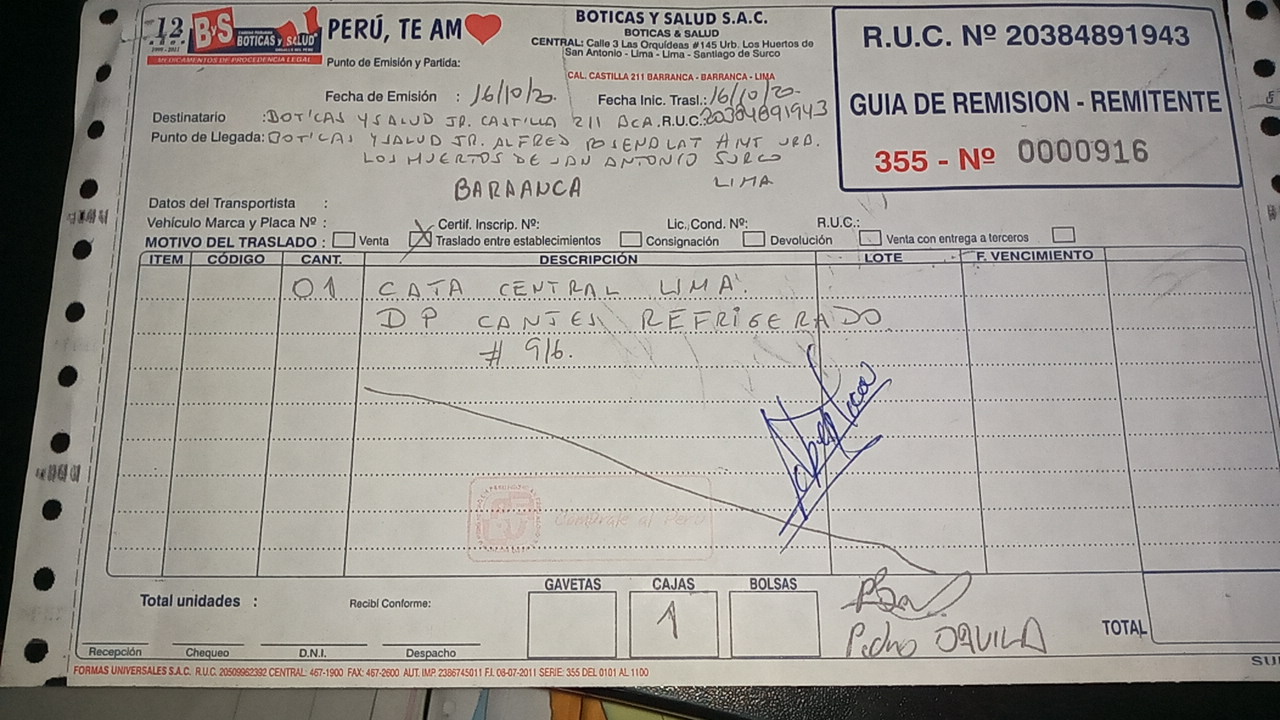 12 años
1999 - 2011
ByS
BOTICAS y SALUD
MEDICAMENTOS DE PROCEDENCIA LEGAL
PERÚ, TE AM
BOTICAS Y SALUD S.A.C.
BOTICAS & SALUD
CENTRAL: Calle 3 Las Orquídeas #145 Urb. Los Huertos de
San Antonio - Lima - Lima - Santiago de Surco
CAL. CASTILLA 211 BARRANCA - BARRANCA - LIMA
R.U.C. Nº 20384891943
GUIA DE REMISION - REMITENTE
355 - Nº 0000916
Punto de Emisión y Partida:
Fecha de Emisión : 16/10/20. Fecha Inic. Trasl.: 16/10/20-
Destinatario : BOTICAS Y SALUD JR. CASTILLA 211 BCA. R.U.C. 20384891943
Punto de Llegada: BOTICAS Y SALUD JR. ALFRED ROSEND LAT ANT URB.
LOS HUERTOS DE SAN ANTONIO SURCO
BARRANCA LIMA
Datos del Transportista :
Vehículo Marca y Placa Nº : Certif. Inscrip. Nº: Lic. Cond. Nº: R.U.C.:
MOTIVO DEL TRASLADO : Venta X Traslado entre establecimientos Consignación Devolución Venta con entrega a terceros
ITEM CÓDIGO CANT. DESCRIPCIÓN LOTE F. VENCIMIENTO
01 CATA CENTRAL LIMA
DP CANJES REFRIGERADO
# 916.
Cómprale al Perú
GAVETAS CAJAS BOLSAS
1
Total unidades : Recibí Conforme:
Pedro DAVILA
TOTAL
Recepción Chequeo D.N.I. Despacho
FORMAS UNIVERSALES S.A.C. R.U.C. 20509962392 CENTRAL: 467-1900 FAX: 467-2600 AUT. IMP. 2386745011 F.I. 08-07-2011 SERIE: 355 DEL 0101 AL 1100